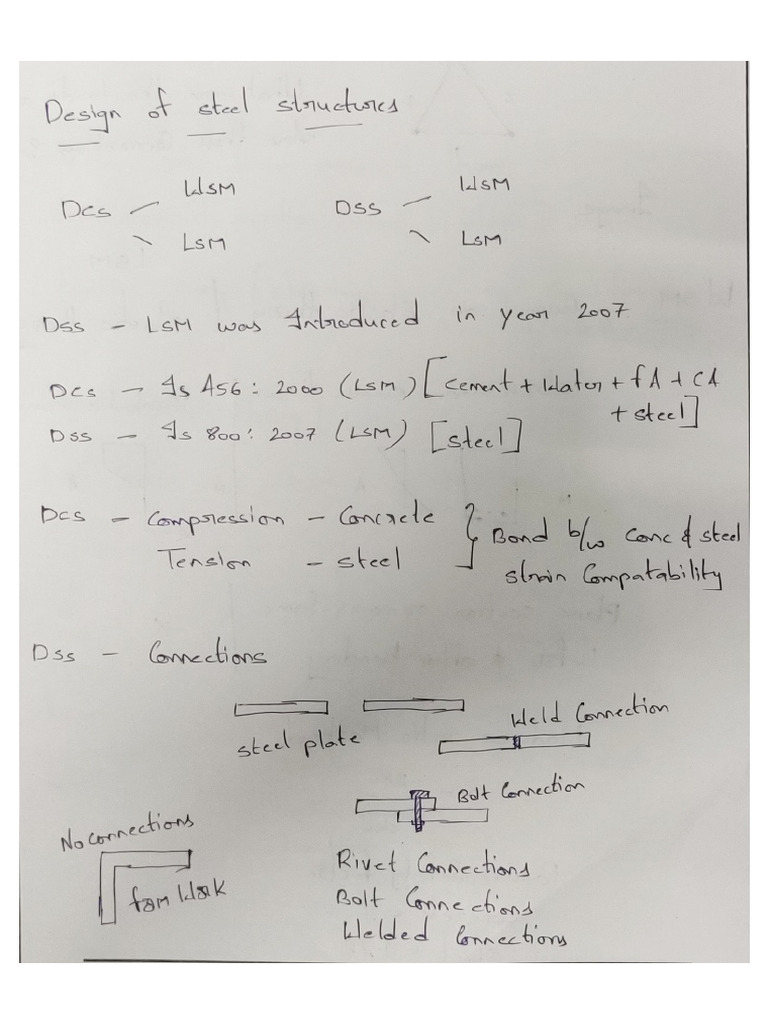 Design of steel structures
WSM WSM
DCS DSS
LSM LSM
DSS - LSM was Introduced in year 2007
DCS - Is 456: 2000 (LSM) [Cement + Water + fA + CA
+ steel]
DSS - Is 800: 2007 (LSM) [steel]
DCS - Compression - Concrete
Tension - steel
Bond b/w Conc & steel
strain Compatability
DSS - Connections
steel plate
Weld Connection
Bolt Connection
No Connections
form Work
Rivet Connections
Bolt Connections
Welded Connections